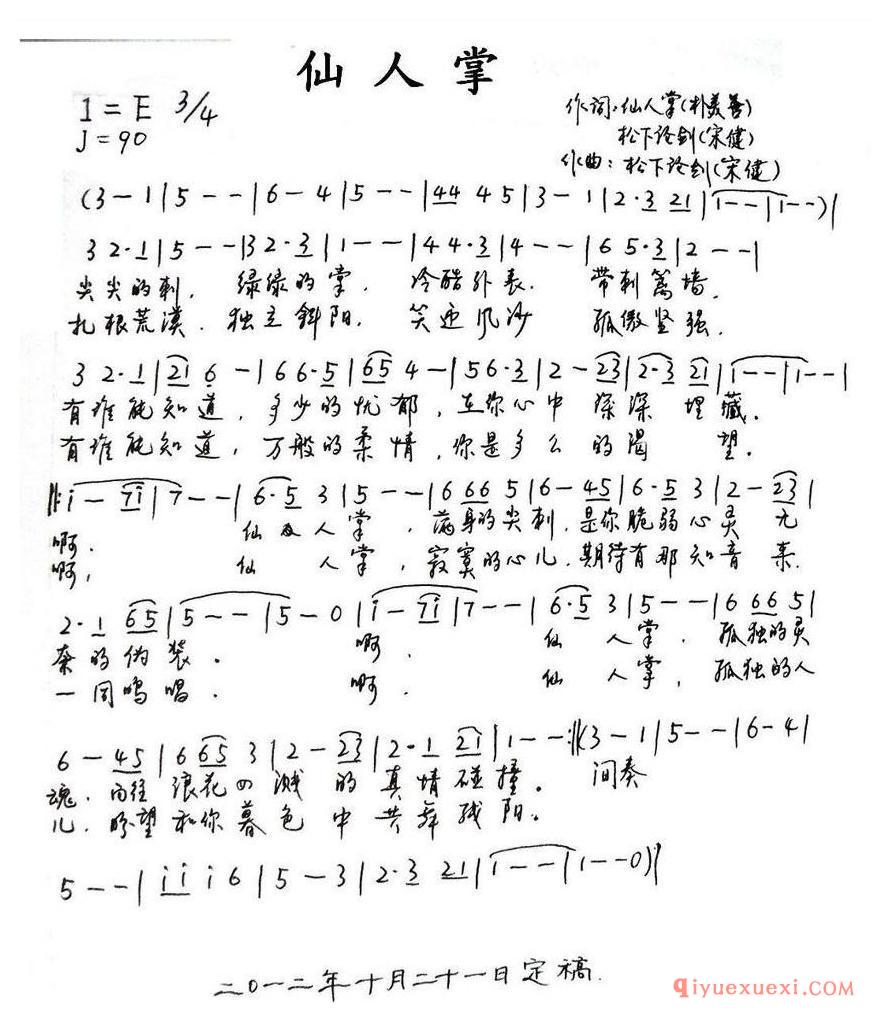 仙人掌
1=E 3/4
J=90
作词:仙人掌(朴美善)
松下论剑(宋健)
作曲:松下论剑(宋健)
(3-1|5--|6-4|5--|44 45|3-1|2·3 21|1--|1--)|
3 2·1|5--|3 2·3|1--|4 4·3|4--|6 5·3|2--|
尖尖的刺,绿绿的掌,冷酷外表,带刺篱墙,
扎根荒漠,独立斜阳,笑迎风沙 孤傲坚强,
3 2·1|21 6-|6 6·5|65 4-|5 6·3|2-23|2·3 21|1--|1--|
有谁能知道,多少的忧郁,在你心中 深深埋藏。
有谁能知道,万般的柔情,你是多么的渴望。
‖:i-7i|7--|6·5 3|5--|6 66 5|6-45|6·5 3|2-23|
啊, 仙人掌,满身的尖刺,是你脆弱心灵 无
啊, 仙人掌,寂寞的心儿,期待有那知音来
2·1 65|5--|5-0|i-7i|7--|6·5 3|5--|6 66 5|
奈的伪装。 啊, 仙人掌,孤独的灵
一同鸣唱。 啊, 仙人掌,孤独的人
6-45|6 65 3|2-23|2·1 21|1--:‖(3-1|5--|6-4|
魂,向往浪花四溅的真情碰撞。 间奏
儿,盼望和你暮色中共舞残阳。
5--|i i i 6|5-3|2·3 21|1--|1--0)|
二〇一二年十月二十一日定稿.
qiyuexuexi.com